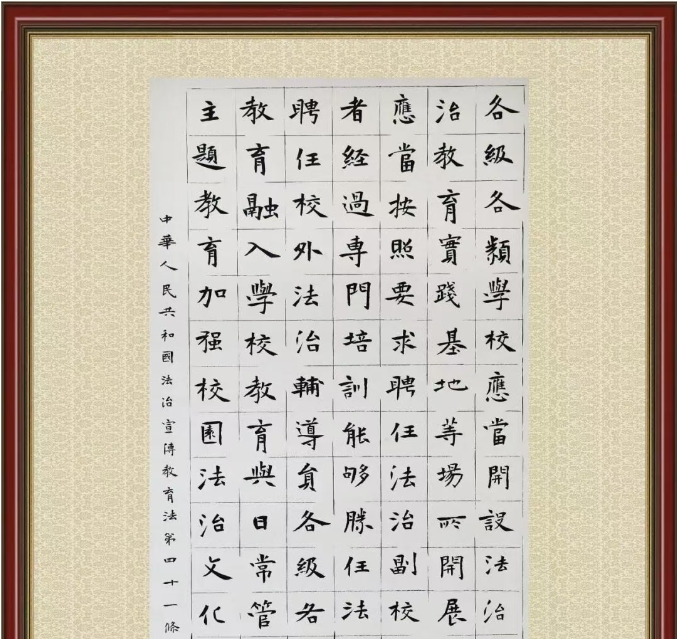 各級各類學校應當開設法治
治教育實踐基地等場所開展
應當按照要求聘任法治副校
者經過専門培訓能够勝任法
聘任校外法治輔導員各級各
教育融入學校教育與日常管
主題教育加强校園法治文化
中華人民共和國法治宣傳教育法第四十一條